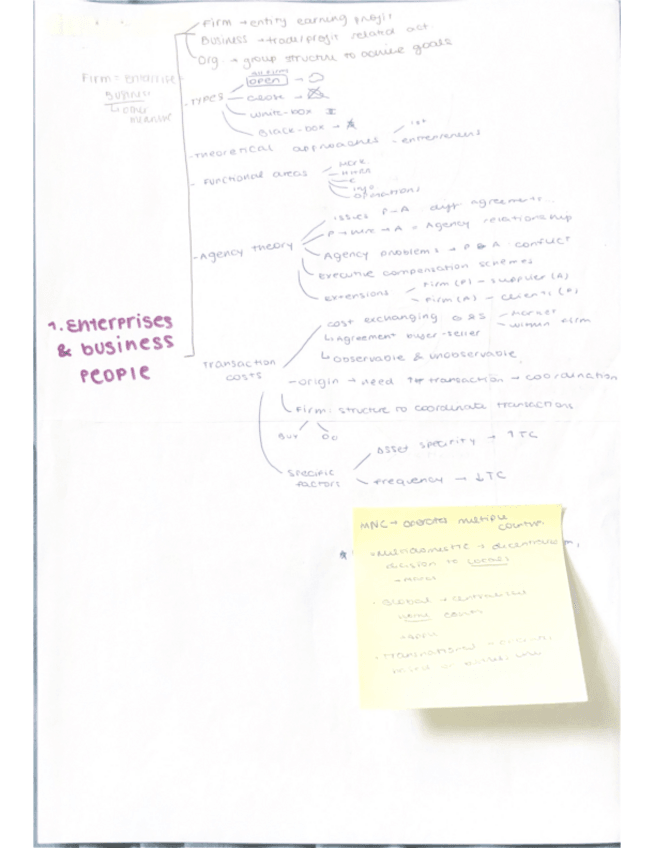 Firm → entity earning profit
Business → trade/profit related act.
Org. → group structure to achieve goals
Firm = enterprise =
business
↳ other
meaning
· TYPES
open →
close →
white-box
Black-box →
- Theoretical approaches
- entrepreneurs
- Functional areas
operations
- Agency theory
issues P-A diff agreements..
P → hire → A = Agency relationship
Agency problems → P & A conflict
executive compensation schemes
extensions
Firm (P) - supplier (A)
Firm (A) - clients (P)
1. Enterprises
& business
people
Transaction
costs
cost exchanging G & S
- market
- within firm
↳ Agreement buyer-seller
↳ observable & unobservable
- origin → need for transaction → coordination
Firm: structure to coordinate transactions
Buy Do
Specific
factors
Asset specificity → ↑TC
frequency → ↓TC
MNC → operates multiple
countr.
· Multidomestic → decentralism,
decision to locals
· Global → centralized
home
· Transnational